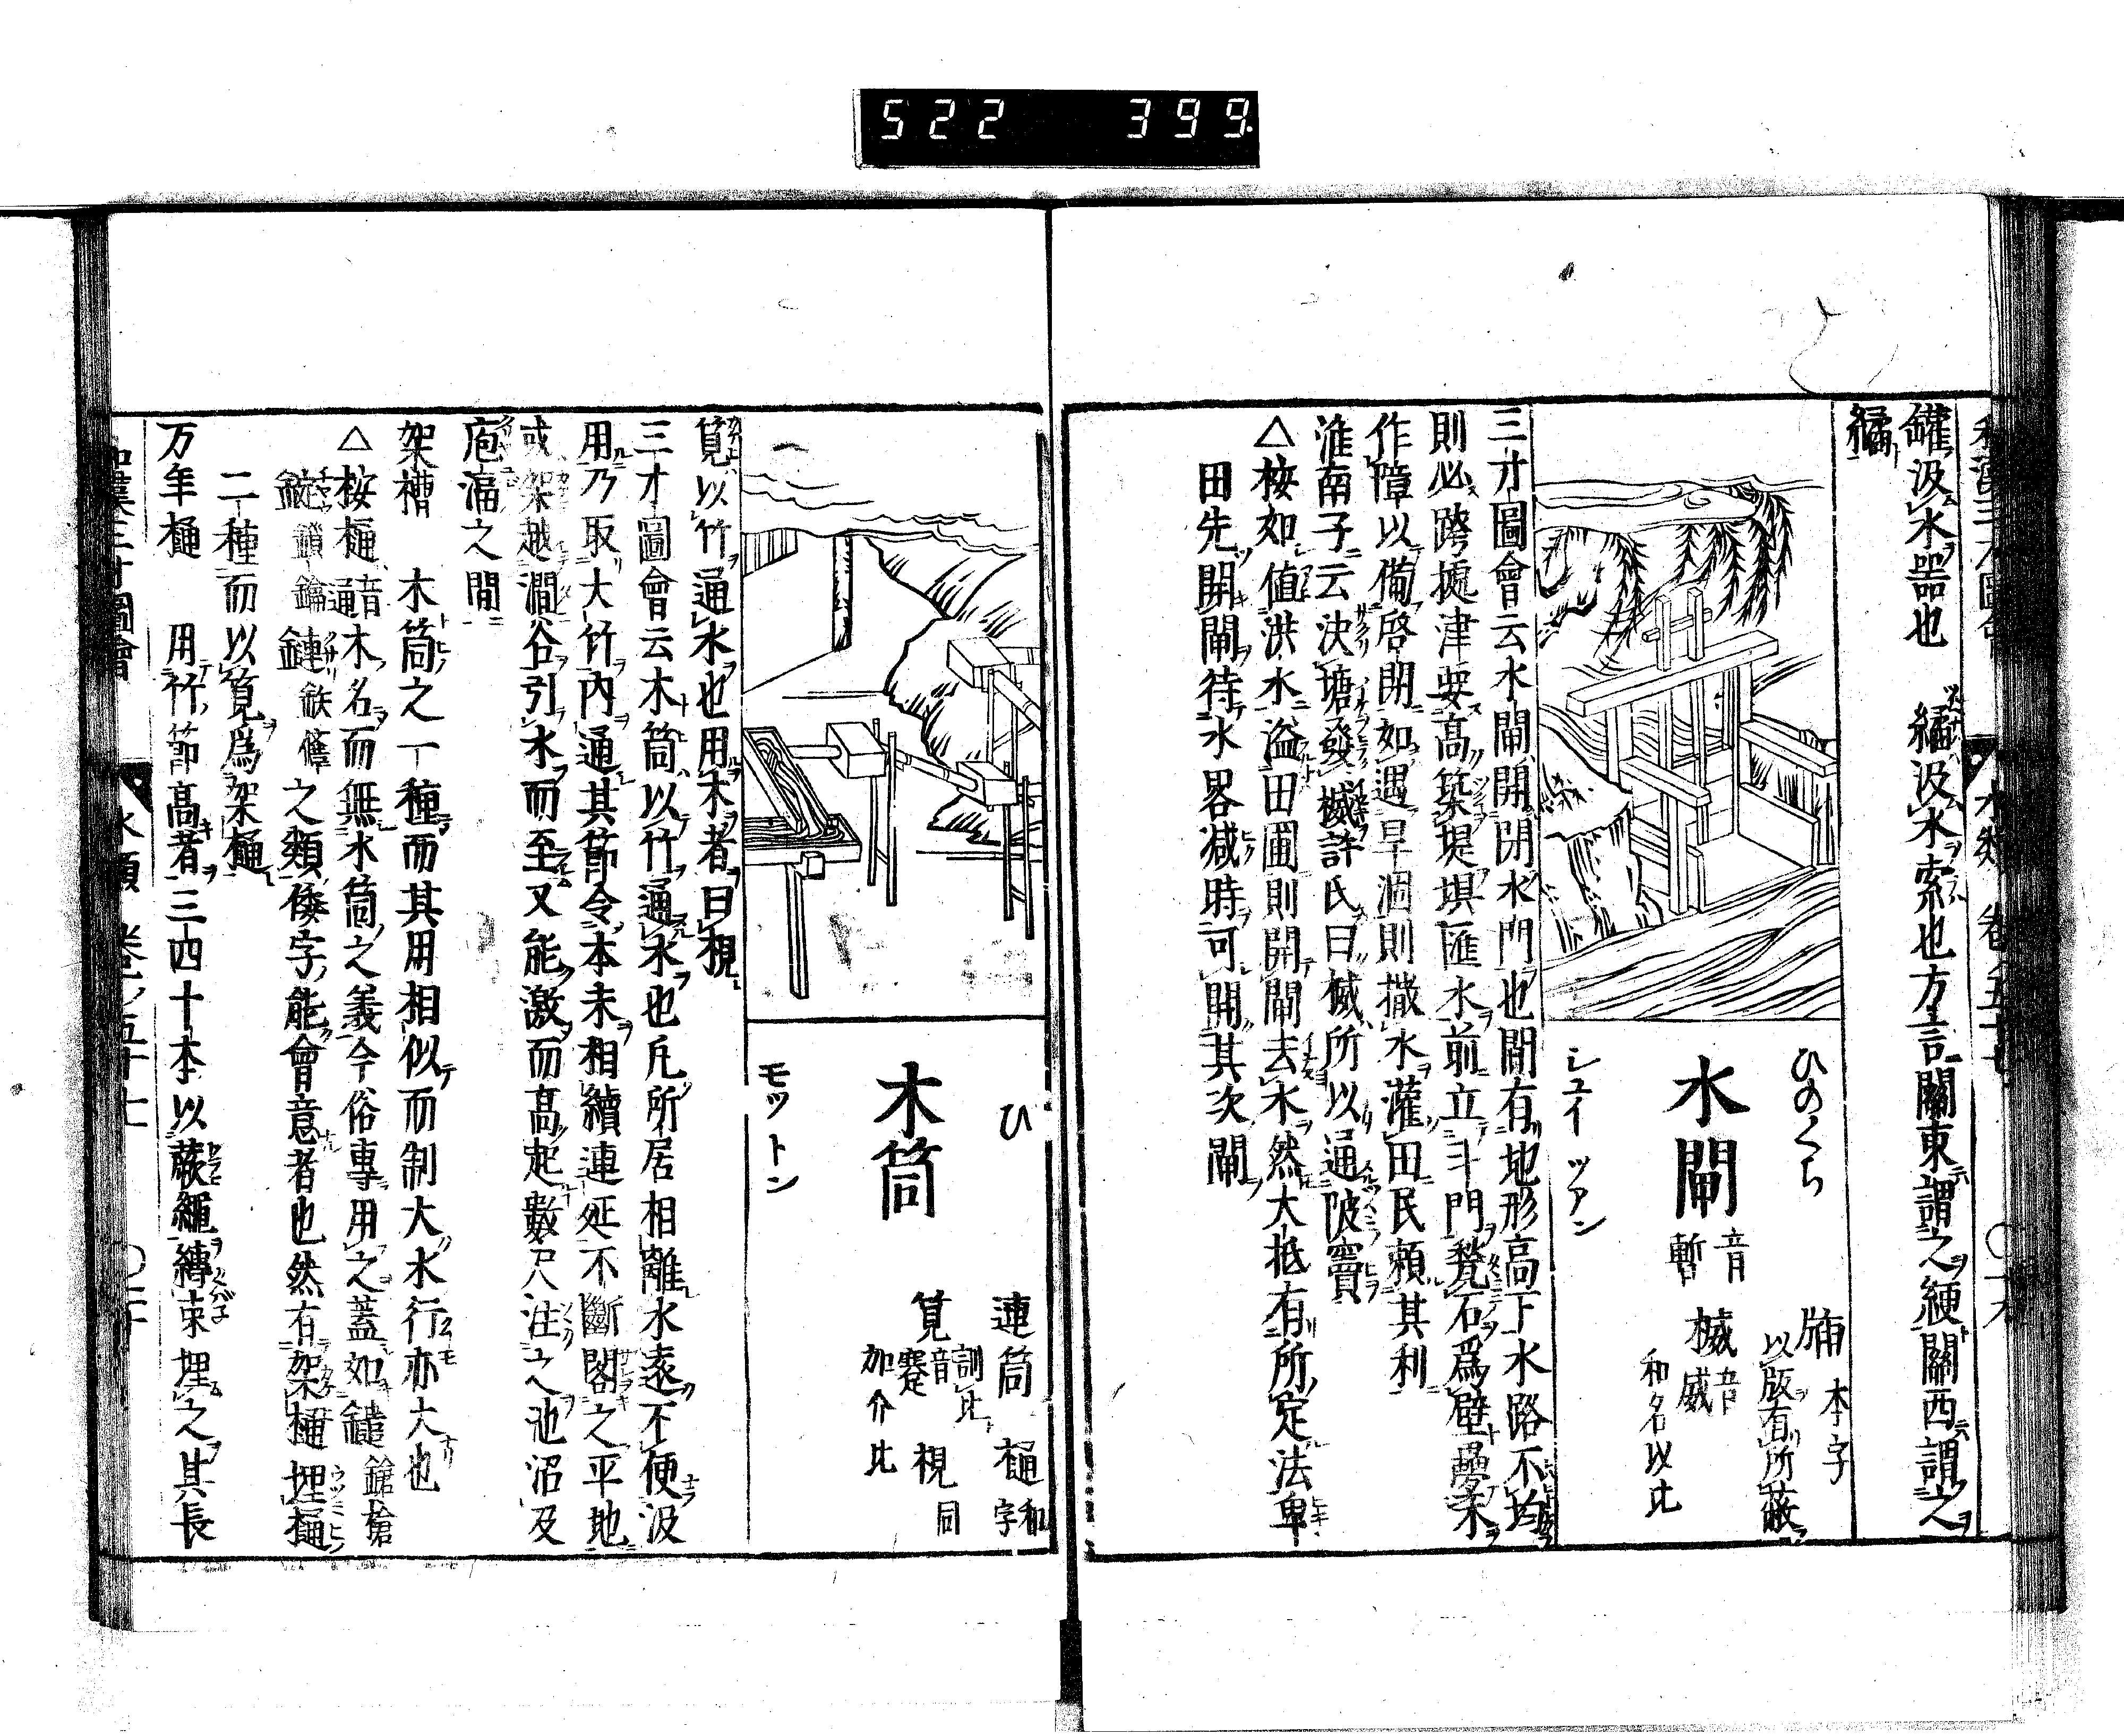 522 399.
罐汲水器也 繘汲水索也方言關東謂之綆關西謂之
繘
ひのくち
水閘
音暫
牐 本字
以版有所蔽
楲 音威
和名以比
シユイ ツアン
三才圖會云水閘開閉水門也間有地形高下水路不均
則必跨據津要高築堤埧匯水前立斗門甃石爲壁疊木
作障以備啓閉如遇旱涸則撒水灌田民賴其利
淮南子云決塘發楲許氏曰楲所以通陂竇
△桉如值洪水溢田圃則開閘去水然大抵有所定法卑
田先開閘待水畧減時可開其次閘
ひ
木筒
連筒 樋 和字
筧 訓比 音蹇 梘 同
加介比
モツトン
筧以竹通水也用木者曰梘
三才圖會云木筒以竹通水也凡所居相離水遠不便汲
用乃取大竹內通其節令本末相續連延不斷閣之平地
或架越澗谷引水而至又能激而高起數尺注之池沼及
庖湢之間
架槽 木筒之一種而其用相似而制大水行亦大也
△桉樋 音通 木名而無水筒之義今俗專用之蓋如
之類倭字能會意者也然有架樋埋樋
二種而以筧爲架樋
万年樋 用竹節高者三四十本以蕨繩縛束埋之其長